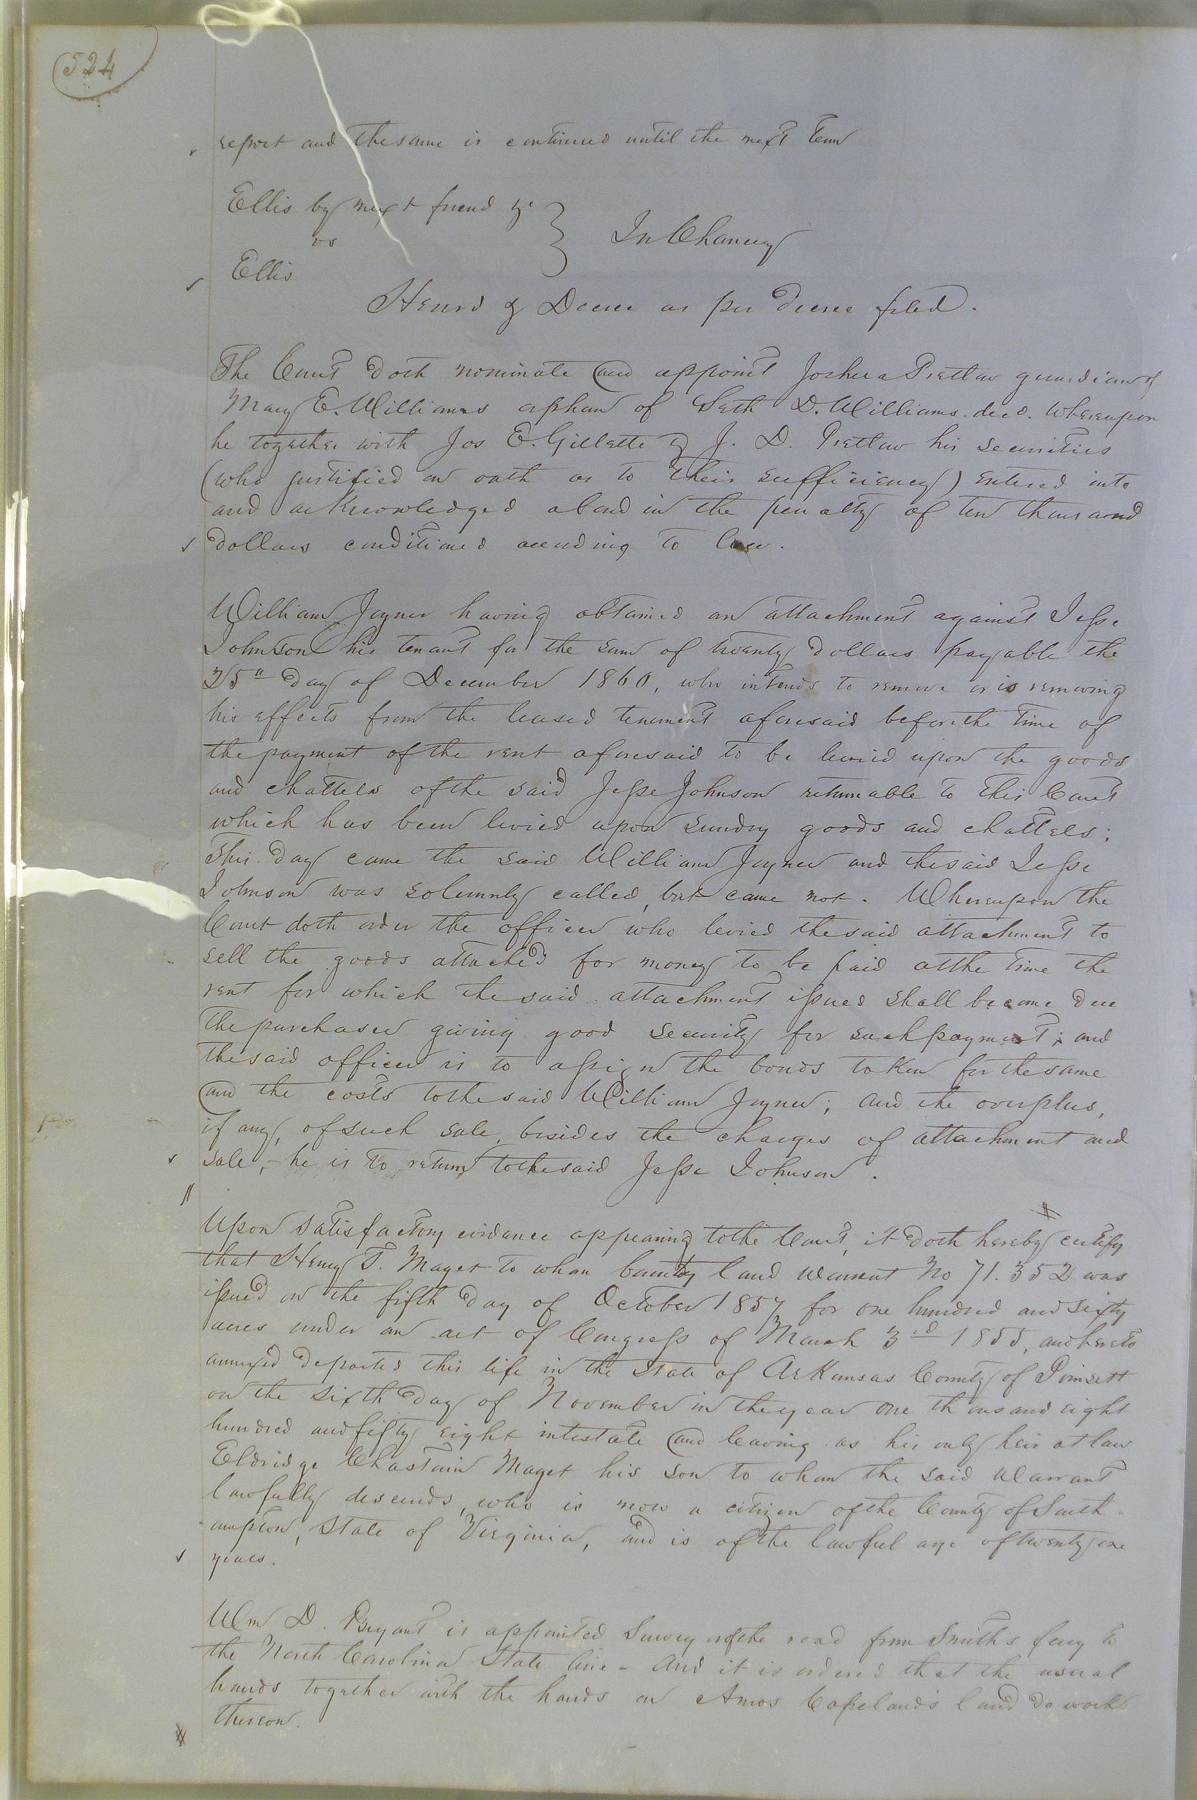 524
report and the same is continued until the next Term
Ellis by next friend &c
vs
In Chancery
Ellis
Heard & Decree as per decree filed.
The Court doth nominate and appoint Joshua Pretlow guardian of
Mary E. Williams orphan of Seth D. Williams dec'd. Whereupon
he together with Jos E. Gillette & J. D. Pretlow his securities
(who justified on oath as to their sufficiency) entered into
and acknowledged a bond in the penalty of ten thousand
dollars conditioned according to law.
William Joyner having obtained an attachment against Jesse
Johnson his tenant for the sum of twenty dollars payable the
25th day of December 1860, who intends to remove or is removing
his effects from the leased tenement aforesaid before the time of
the payment of the rent aforesaid to be levied upon the goods
and chattels of the said Jesse Johnson returnable to this Court
which has been levied upon sundry goods and chattels;
This day came the said William Joyner and the said Jesse
Johnson was solemnly called, but came not. Whereupon the
Court doth order the officer who levied the said attachment to
sell the goods attached for money to be paid at the time the
rent for which the said attachment issued shall become due
the purchaser giving good security for such payment; and
the said officer is to assign the bonds taken for the same
and the costs to the said William Joyner; and the overplus,
if any, of such sale, besides the charges of attachment and
sale, he is to return to the said Jesse Johnson.
Upon satisfactory evidence appearing to the Court, it doth hereby certify
that Henry T. Maget to whom bounty land warrant No 71.352 was
issued on the fifth day of October 1857 for one hundred and sixty
acres under an act of Congress of March 3rd 1855, and hereto
annexed departed this life in the State of Arkansas County of Poinsett
on the sixth day of November in the year one thousand eight
hundred and fifty eight intestate and leaving as his only heir at law
Eldridge Chastain Maget his son to whom the said Warrant
lawfully descends, who is now a citizen of the County of South
ampton, State of Virginia, and is of the lawful age of twenty one
years.
Wm D. Bryant is appointed Survey of the road from Smith's ferry to
the North Carolina State line - And it is ordered that the usual
hands together with the hands on Amos Copeland's land do work
thereon.